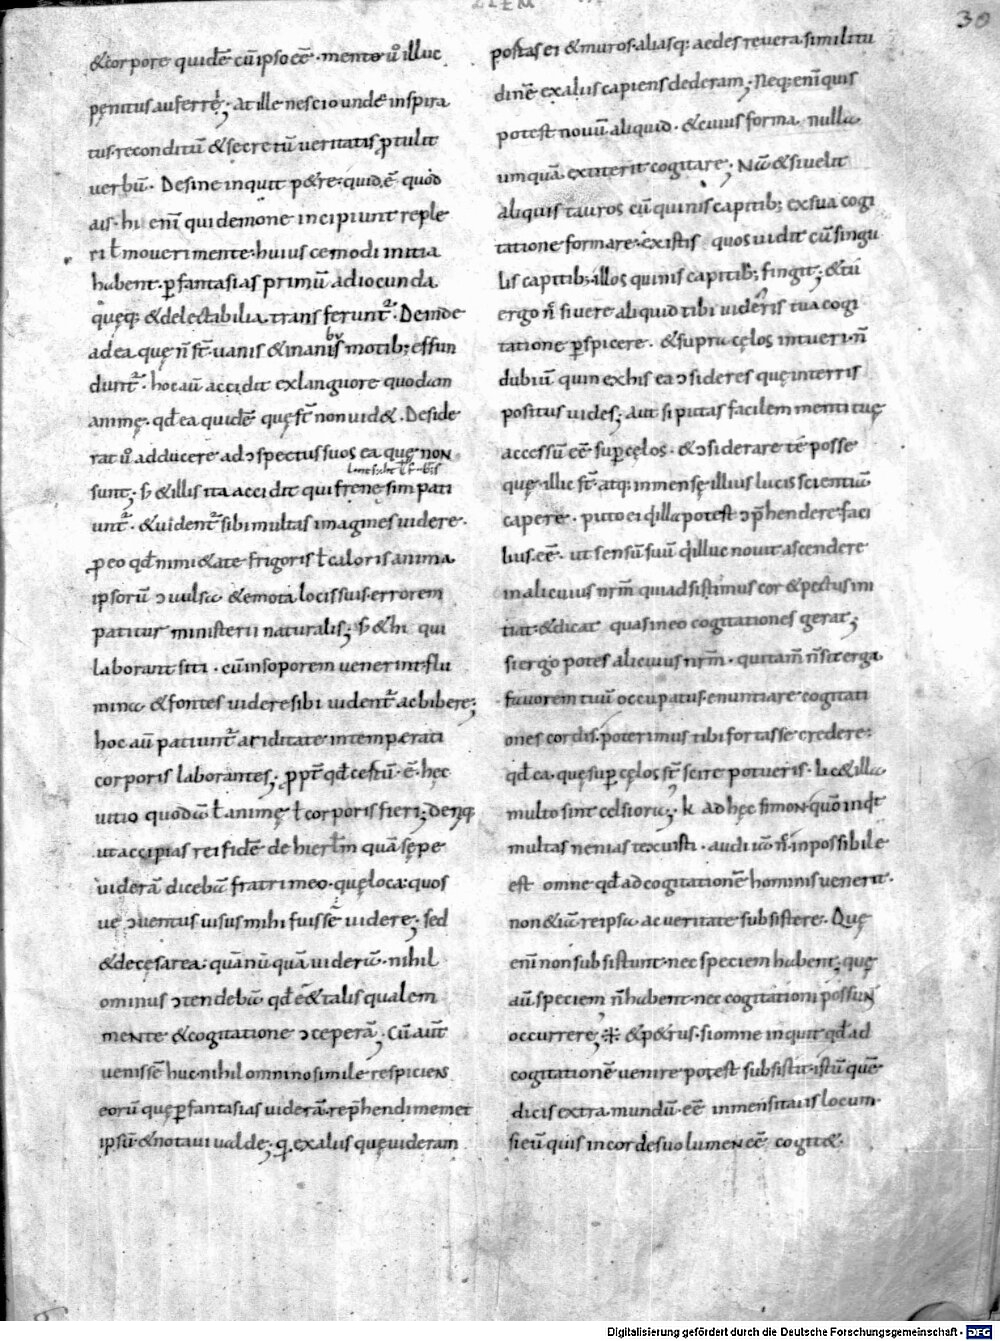 ITEM
30
&corpore quidē cū ipso eē · mente ů illuc
penitus auferre; at ille nescio unde inspira
tus · reconditū & secretū ueritatis ptulit
uerbū · Desine inquit p&re · quid · ē · quod
ais · hi enī qui demone incipiunt reple
ri ł moueri mente · huiusce modi initia
habent · p fantasias primū ad iocunda
quęq; & delectabilia transferunt · Deinde
ad ea quę n̄ st̄ · uanis & inanibus motib; effun
dunt · hoc aū accidit ex languore quodam
animę · qđ ea quidē quę st̄ non uid& · Deside
rat ů adducere ad ɔspectus suos ea quę non
sunt; s; & illis ita accidit qui frenesim pati
unt · & uident sibi multas imagines uidere ·
p eo qđ nimi&ate frigoris ł caloris anima
ipsorū ɔuulsa & emota locis suis · errorem
patitur ministerii naturalis; s; & hi qui
laborant siti · cū in soporem uenerint · flu
mina & fontes uidere sibi uident ac bibere;
hoc aū patiunt ariditate intemperati
corporis laborantes; ppt qđ certū · ē · hęc
uitio quodā ł animę ł corporis fieri; Deniq;
ut accipias rei fidē de hierłm quā sępe
uiderā dicebā fratri meo · quę loca · quos
ue ɔuentus uisus mihi fuissē uidere; sed
& de cęsarea · quā nū quā uiderā · nihil
ominus ɔtendebā qđ eē& talis qualem
mente & cogitatione ɔceperā; Cū aūt
uenissē huc · nihil omnino simile respiciens
eorū quę p fantasias uiderā · rep̄hendi memet
ipsū & notaui ualde; q; ex aliis quę uiderā
postas ei & muros · aliasq; aedes reuera similitu
dinē ex aliis capiens dederam; Neq; enī quis
potest nouū aliquid · & cuius forma nulla
umquā extiterit cogitare; Nā & si uelit
aliquis tauros cū quinis capitib; ex sua cogi
tatione formare · ex istis quos uidit cū singu
lis capitib; illos quinis capitib; fingit; & tu
ergo n̄ si uere aliquid tibi uideris tua cogi
tatione pspicere · & supra cęlos intueri · n̄
dubiū quin ex his ea ɔsideres quę in terris
positus uides; Aut si putas facilem menti tuę
accessū eē sup cęlos · & ɔsiderare te posse
quę illic st̄ · atq; inmensę illius lucis scientiā
capere · puto ei q̇ illa potest ɔp̄hendere faci
lius · eē · ut sensū suū q̇ illuc nouit ascendere
in alicuius nr̄m qui adsistimus cor & pectus mi
tiat · & dicat quas in eo cogitationes gerat;
si ergo potes alicuius nr̄m · qui tam̄ n̄ sit erga
fauorem tuū occupatus · enuntiare cogitati
ones cordis · poterimus tibi fortasse credere ·
qđ ea · quę sup cęlos st̄ scire potueris · lic& illa
multo sint celsiora; k ad hęc simon · quō inqt
multas nenias texuisti · audi iā n̄ inpossibile
est omne qđ ad cogitationē hominis uenerit ·
non & iā re ipsa ac ueritate subsistere · Quę
enī non subsistunt · nec speciem habent; quę
aū speciem n̄ habent · nec cogitationi possunt
occurrere; & p&rus · si omne inquit qđ ad
cogitationē uenire potest subsistit · istū quē
dicis extra mundū · eē inmensitatis locum ·
si eū quis in corde suo lumen eē cogit& ·
Digitalisierung gefördert durch die Deutsche Forschungsgemeinschaft - DFG